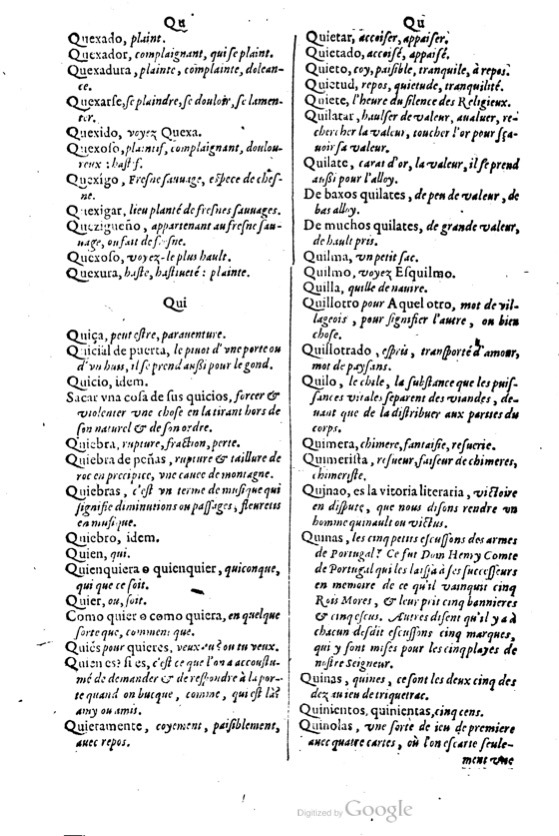 Qu
Quexado, plaint.
Quexador, complaignant, qui se plaint.
Quexadura, plainte, complainte, dolean-
ce.
Quexarse, se plaindre, se douloir, se lamen-
ter.
Quexido, voyez Quexa.
Quexoso, plaintif, complaignant, doulou-
reux : hastif.
Quexigo, Fresne sauuage, espece de ches-
ne.
Quexigar, lieu planté de fresnes sauuages.
Quezigueño, appartenant au fresne sau-
uage, ou fait de fresne.
Quexoso, voyez-le plus hault.
Quexura, haste, hastiueté : plainte.
Qui
Quiça, peut estre, parauenture.
Quicial de puerta, le piuot d'vne porte ou
d'vn huis, il se prend aussi pour le gond.
Quicio, idem.
Sacar vna cosa de sus quicios, forcer &
violenter vne chose en la tirant hors de
son naturel & de son ordre.
Quiebra, rupture, fraction, perte.
Quiebra de peñas, rupture & taillure de
roc en precipice, vne cauee de montagne.
Quiebras, c'est vn terme de musique qui
signifie diminutions ou passages, fleuretis
en musique.
Quiebro, idem.
Quien, qui.
Quienquiera o quienquier, quiconque,
qui que ce soit.
Quier, ou, soit.
Como quier o como quiera, en quelque
sorte que, comment que.
Quiés pour quieres, veux-tu? ou tu veux.
Quien es? si es, c'est ce que l'on a accoustu-
mé de demander & de respondre à la por-
te quand on bucque, comme, qui est là?
amy ou amis.
Quietamente, coyement, paisiblement,
auec repos.
Qu
Quietar, accoiser, appaiser.
Quietado, accoisé, appaisé.
Quieto, coy, paisible, tranquile, à repos.
Quietud, repos, quietude, tranquilité.
Quiete, l'heure du silence des Religieux.
Quilatar, haulser de valeur, aualuer, re-
chercher la valeur, toucher l'or pour sça-
uoir sa valeur.
Quilate, carat d'or, la valeur, il se prend
aussi pour l'alloy.
De baxos quilates, de peu de valeur, de
bas alloy.
De muchos quilates, de grande valeur,
de hault pris.
Quilma, vn petit sac.
Quilmo, voyez Esquilmo.
Quilla, quille de nauire.
Quillotro pour Aquel otro, mot de vil-
lageois, pour signifier l'autre, ou bien
chose.
Quillotrado, espris, transporté d'amour,
mot de paysans.
Quilo, le chile, la substance que les puis-
sances vitales separent des viandes, de-
uant que de la distribuer aux parties du
corps.
Quimera, chimere, fantaisie, resuerie.
Quimerista, resueur, faiseur de chimeres,
chimeriste.
Quinao, es la vitoria literaria, victoire
en dispute, que nous disons rendre vn
homme quinault ou victus.
Quinas, les cinq petits escussons des armes
de Portugal? Ce fut Dom Henry Comte
de Portugal qui les laissa à ses successeurs
en memoire de ce qu'il vainquit cinq
Rois Mores, & leur prit cinq bannieres
& cinq escus. Autres disent qu'il y a à
chacun desdit escussons cinq marques,
qui y sont mises pour les cinq playes de
nostre Seigneur.
Quinas, quines, ce sont les deux cinq des
dez au ieu de triquetrac.
Quinientos, quinientas, cinq cens.
Quinolas, vne sorte de ieu de premiere
auec quatre cartes, où l'on escarte seule-
ment vne
Digitized by Google